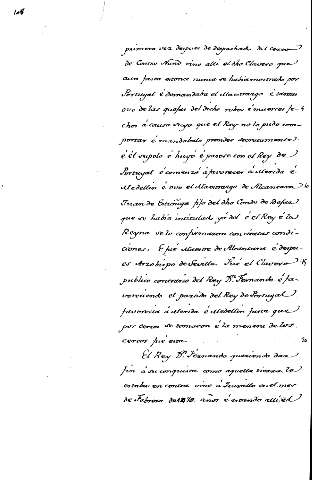 primera vez despues de despachado del cerco
de Canso Nuño vino alli el dho Clavero que
aun fasta estonce nunca se habia mostrado por
Portugal è demandaba el Maestrazgo è sobre
eso de las quejas del dicho robos è muertes fe-
chos à causa suya que el Rey no la pudo com-
portar è mandabalo prender secretamente
è él supolo è huyó è juntose con el Rey de
Portugal è comenzó à favorecer à Merida è
Medellin è ovo el Maestrazgo de Alcantara
Juan de Estuñiga fijo del dho Conde de Bejar
que se habia intitulado ya del è el Rey è la
Reyna se lo confirmaron con ciertas condi-
ciones. E fué Maestre de Alcantara è despu-
es Arzobispo de Sevilla. Fué el Clavero
publico contrario del Rey Dn. Fernando è fa-
voreciendo el partido del Rey de Portugal
favorecia à Merida è Medellin fasta que
por cerco se tomaron è la manera de los
cercos fué esta
El Rey Dn. Fernando queriendo dar
fin à su conquista como aquella tierra le
estaba en contra vino à Truxillo en el mes
de Febrero de 1479 años è estando alli el